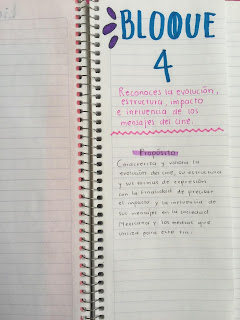 BLOQUE
4
Reconoces la evolución,
estructura, impacto
e influencia de los
mensajes del cine.
Propósito
Caracteriza y valora la
evolución del cine, su estructura
y sus formas de expresión
con la finalidad de precisar
el impacto y la influencia de
sus mensajes en la sociedad
Mexicana y los medios que
utiliza para este fin.